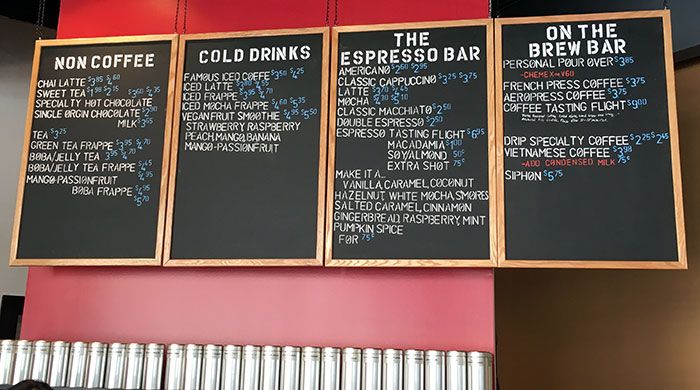 NON COFFEE
CHAI LATTE $3.85 $4.60
SWEET TEA $1.98 $2.15
SPECIALTY HOT CHOCOLATE $3.60 $4.35
SINGLE ORGIN CHOCOLATE $2.00
MILK $3.65
TEA $3.75
GREEN TEA FRAPPE $3.95 $4.70
BOBA/JELLY TEA $3.95 $4.70
BOBA/JELLY TEA FRAPPE $4.45
MANGO-PASSIONFRUIT $4.95
BOBA FRAPPE $4.95
$5.70
COLD DRINKS
FAMOUS ICED COFFE $3.50 $4.25
ICED LATTE
ICED FRAPPE $3.95 $4.70
ICED MOCHA FRAPPE $4.60 $5.35
VEGAN FRUIT SMOOTHIE $4.95 $5.50
STRAWBERRY, RASPBERRY
PEACH, MANGO, BANANA
MANGO-PASSIONFRUIT
THE
ESPRESSO BAR
AMERICANO $2.60 $2.95
CLASSIC CAPPUCCINO
LATTE $3.70 $4.45 $3.25 $3.75
MOCHA
CLASSIC MACCHIATO $2.50
DOUBLE ESPRESSO $2.50
ESPRESSO TASTING FLIGHT $6.95
MACADAMIA $1.00
SOY/ALMOND 50¢
EXTRA SHOT 75¢
MAKE IT A...
VANILLA, CARAMEL, COCONUT
HAZELNUT, WHITE MOCHA, SMORES
SALTED CARAMEL, CINNAMON
GINGERBREAD, RASPBERRY, MINT
PUMPKIN SPICE
FOR 75¢
ON THE
BREW BAR
PERSONAL POUR OVER $3.85
-CHEMEX or V60
FRENCH PRESS COFFEE $3.75
AEROPRESS COFFEE $3.75
COFFEE TASTING FLIGHT $9.00
DRIP SPECIALTY COFFEE $2.25 $2.45
VIETNAMESE COFFEE $3.98
-ADD CONDENSED MILK 75¢
SIPHON $5.75